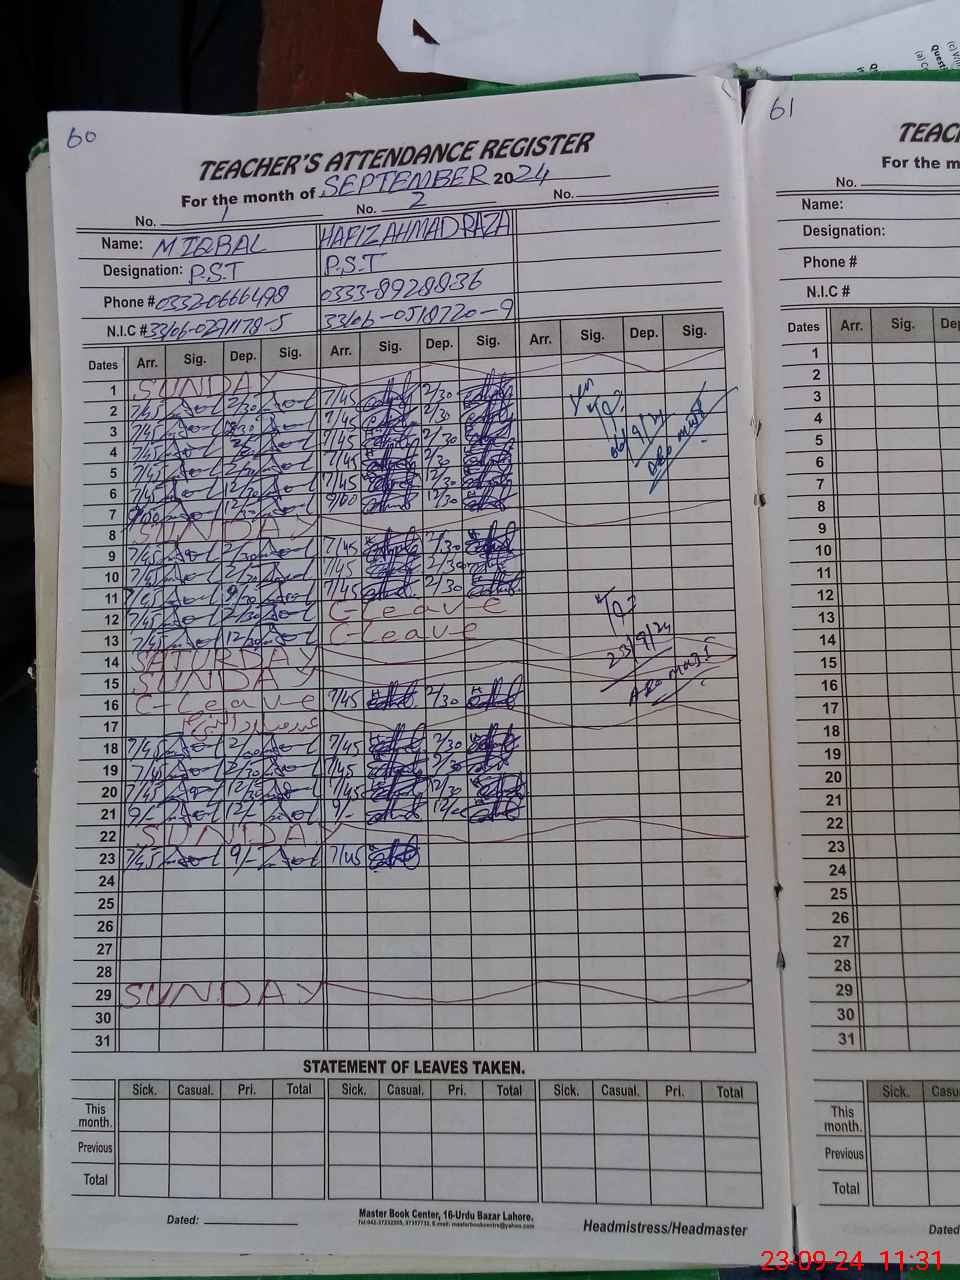 60
TEACHER'S ATTENDANCE REGISTER
For the month of SEPTEMBER 2024
No. 1 No. 2 No.
Name: M IQBAL HAFIZ AHMAD RAZA
Designation: P.S.T P.S.T
Phone # 0332-0666498 0333-8928836
N.I.C # 33106-0291178-5 33106-0518720-9
Dates Arr. Sig. Dep. Sig. Arr. Sig. Dep. Sig. Arr. Sig. Dep. Sig.
1 SUNDAY
2 7/45 2/30 7/45 2/30
3 7/45 2/30 7/45 2/30
4 7/45 7/45 2/30
5 7/45 2/30 7/45 2/30
6 7/45 12/30 7/45 12/30
7 9/00 12/30 9/00 12/30
8 SUNDAY
9 7/45 2/30 7/45 2/30
10 7/45 2/30 7/45 2/30
11 7/45 2/30 7/45 2/30
12 7/45 2/30 C-Leave
13 7/45 12/30 C-Leave
14 SATURDAY
15 SUNDAY
16 C-Leave 7/45 2/30
17
18 7/45 2/30 7/45 2/30
19 7/45 2/30 7/45 2/30
20 7/45 12/30 7/45 12/30
21 9/- 12/- 9/- 12/-
22 SUNDAY
23 7/45 9/- 7/45
24
25
26
27
28
29 SUNDAY
30
31
23/9/24
STATEMENT OF LEAVES TAKEN.
Sick. Casual. Pri. Total Sick. Casual. Pri. Total Sick. Casual. Pri. Total
This month.
Previous
Total
Dated:
Master Book Center, 16-Urdu Bazar Lahore.
Headmistress/Headmaster
61
TEAC
For the m
No.
Name:
Designation:
Phone #
N.I.C #
Dates Arr. Sig. De
1
2
3
4
5
6
7
8
9
10
11
12
13
14
15
16
17
18
19
20
21
22
23
24
25
26
27
28
29
30
31
Sick. Casu
This month.
Previous
Total
Dated
23-09-24 11:31